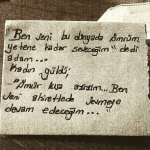 "Ben seni bu dünyada ömrüm
yetene kadar seveceğim" dedi
adam...
Kadın güldü;
"Ömür kısa azizim... Ben
seni ahirette de sevmeye
devam edeceğim..."